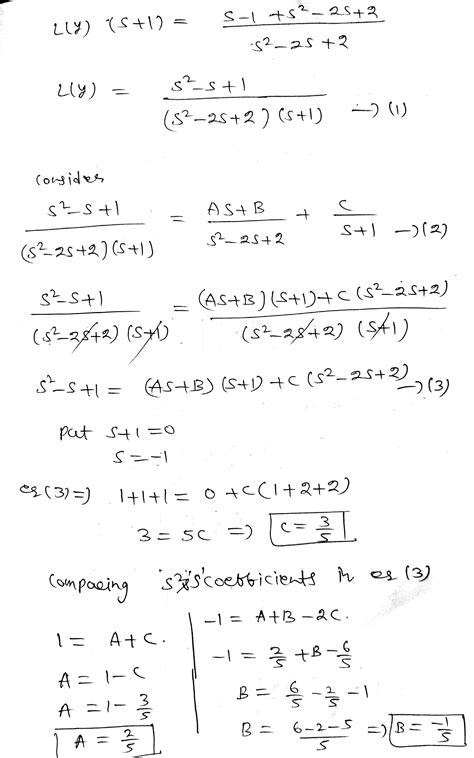 L(y) (s+1) = s-1 +s²-2s+2 / s²-2s+2
L(y) = s²-s+1 / (s²-2s+2) (s+1) → (1)
consider
s²-s+1 / (s²-2s+2)(s+1) = As+B / s²-2s+2 + C / s+1 → (2)
s²-s+1 / (s²-2s+2) (s+1) = (As+B)(s+1)+c(s²-2s+2) / (s²-2s+2) (s+1)
s²-s+1 = (As+B) (s+1)+c(s²-2s+2) → (3)
put s+1=0
s=-1
eq(3)=) 1+1+1= 0 +c(1+2+2)
3 = 5c => c= 3/5
comparing s² & s coefficients in eq (3)
1= A+c.
A = 1-c
A = 1- 3/5
A = 2/5
-1= A+B-2c.
-1 = 2/5 +B- 6/5
B = 6/5 - 2/5 -1
B = 6-2-5 / 5 => B= -1/5